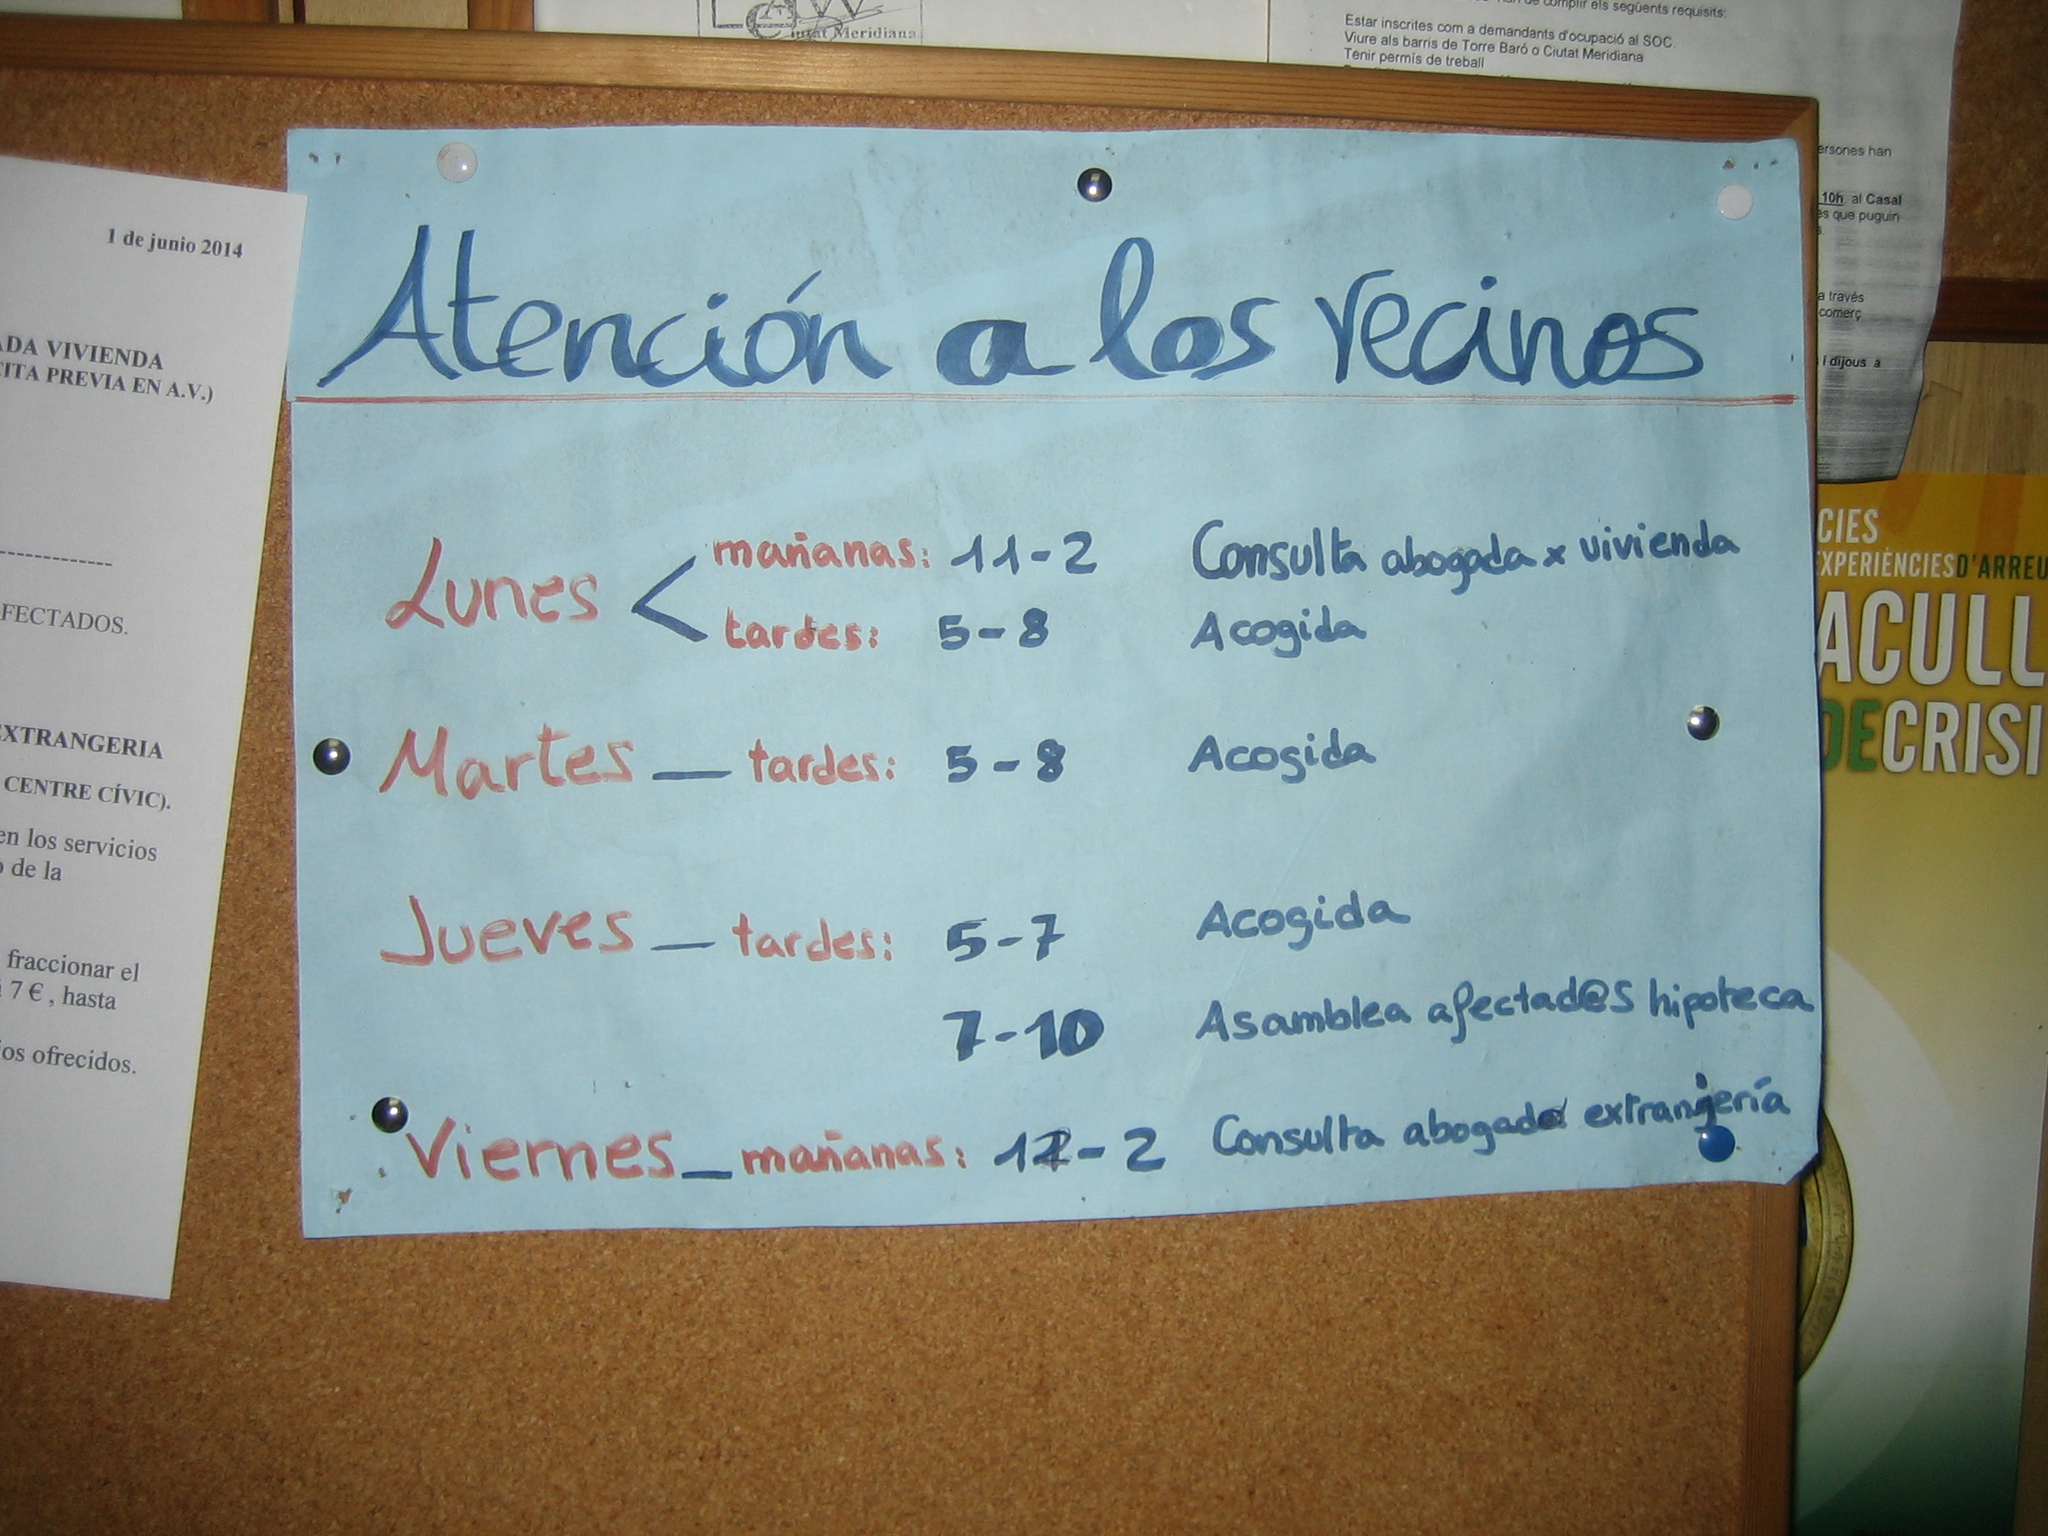 Ciutat Meridiana
complir els següents requisits:
Estar inscrites com a demandants d'ocupació al SOC.
Viure als barris de Torre Baró o Ciutat Meridiana
Tenir permís de treball
ersones han
10h, al Casal
es que puguin
a través
comerç
i dijous a
1 de junio 2014
ADA VIVIENDA
CITA PREVIA EN A.V.)
FECTADOS.
EXTRANGERIA
CENTRE CÍVIC).
en los servicios
o de la
fraccionar el
7 €, hasta
ios ofrecidos.
Atención a los vecinos
Lunes < mañanas: 11-2 Consulta abogada x vivienda
tardes: 5-8 Acogida
Martes — tardes: 5-8 Acogida
Jueves — tardes: 5-7 Acogida
7-10 Asamblea afectad@s hipoteca
Viernes — mañanas: 12-2 Consulta abogado extranjería
CIES
EXPERIÈNCIES D'ARREU
ACULL
DECRISI